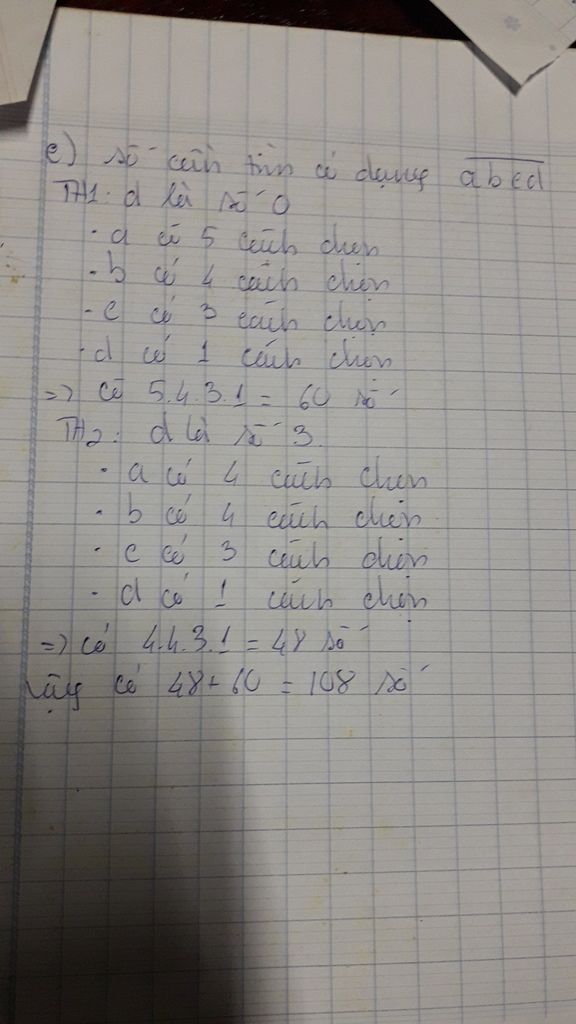 e) số cần tìm có dạng abcd
TH1: d là số 0
· a có 5 cách chọn
· b có 4 cách chọn
· c có 3 cách chọn
· d có 1 cách chọn
=> có 5.4.3.1 = 60 số
TH2: d là số 3.
· a có 4 cách chọn
· b có 4 cách chọn
· c có 3 cách chọn
· d có 1 cách chọn
=> có 4.4.3.1 = 48 số
Vậy có 48 + 60 = 108 số